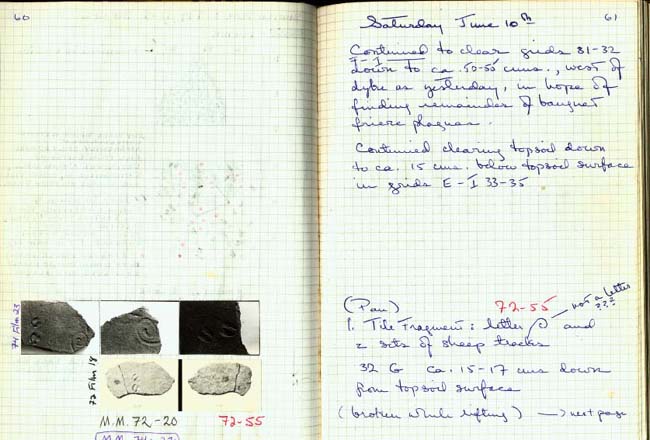 60
74 Film 23
72 Film 18
M.M. 72-20 72-55
M.M. 74-
Saturday June 10th 61
Continued to clear grids 31-32
down to ca. 50-55 cms., west of
dyke as yesterday, in hope of
finding remainder of banquet
frieze plaques.
Continued clearing topsoil down
to ca. 15 cms. below topsoil surface
in grids E-I 33-35
(Pan) 72-55 not a letter
???
1. Tile Fragment: letter and
2 sets of sheep tracks
32 G ca. 15-17 cms down
from topsoil surface
(broken while lifting) → next page